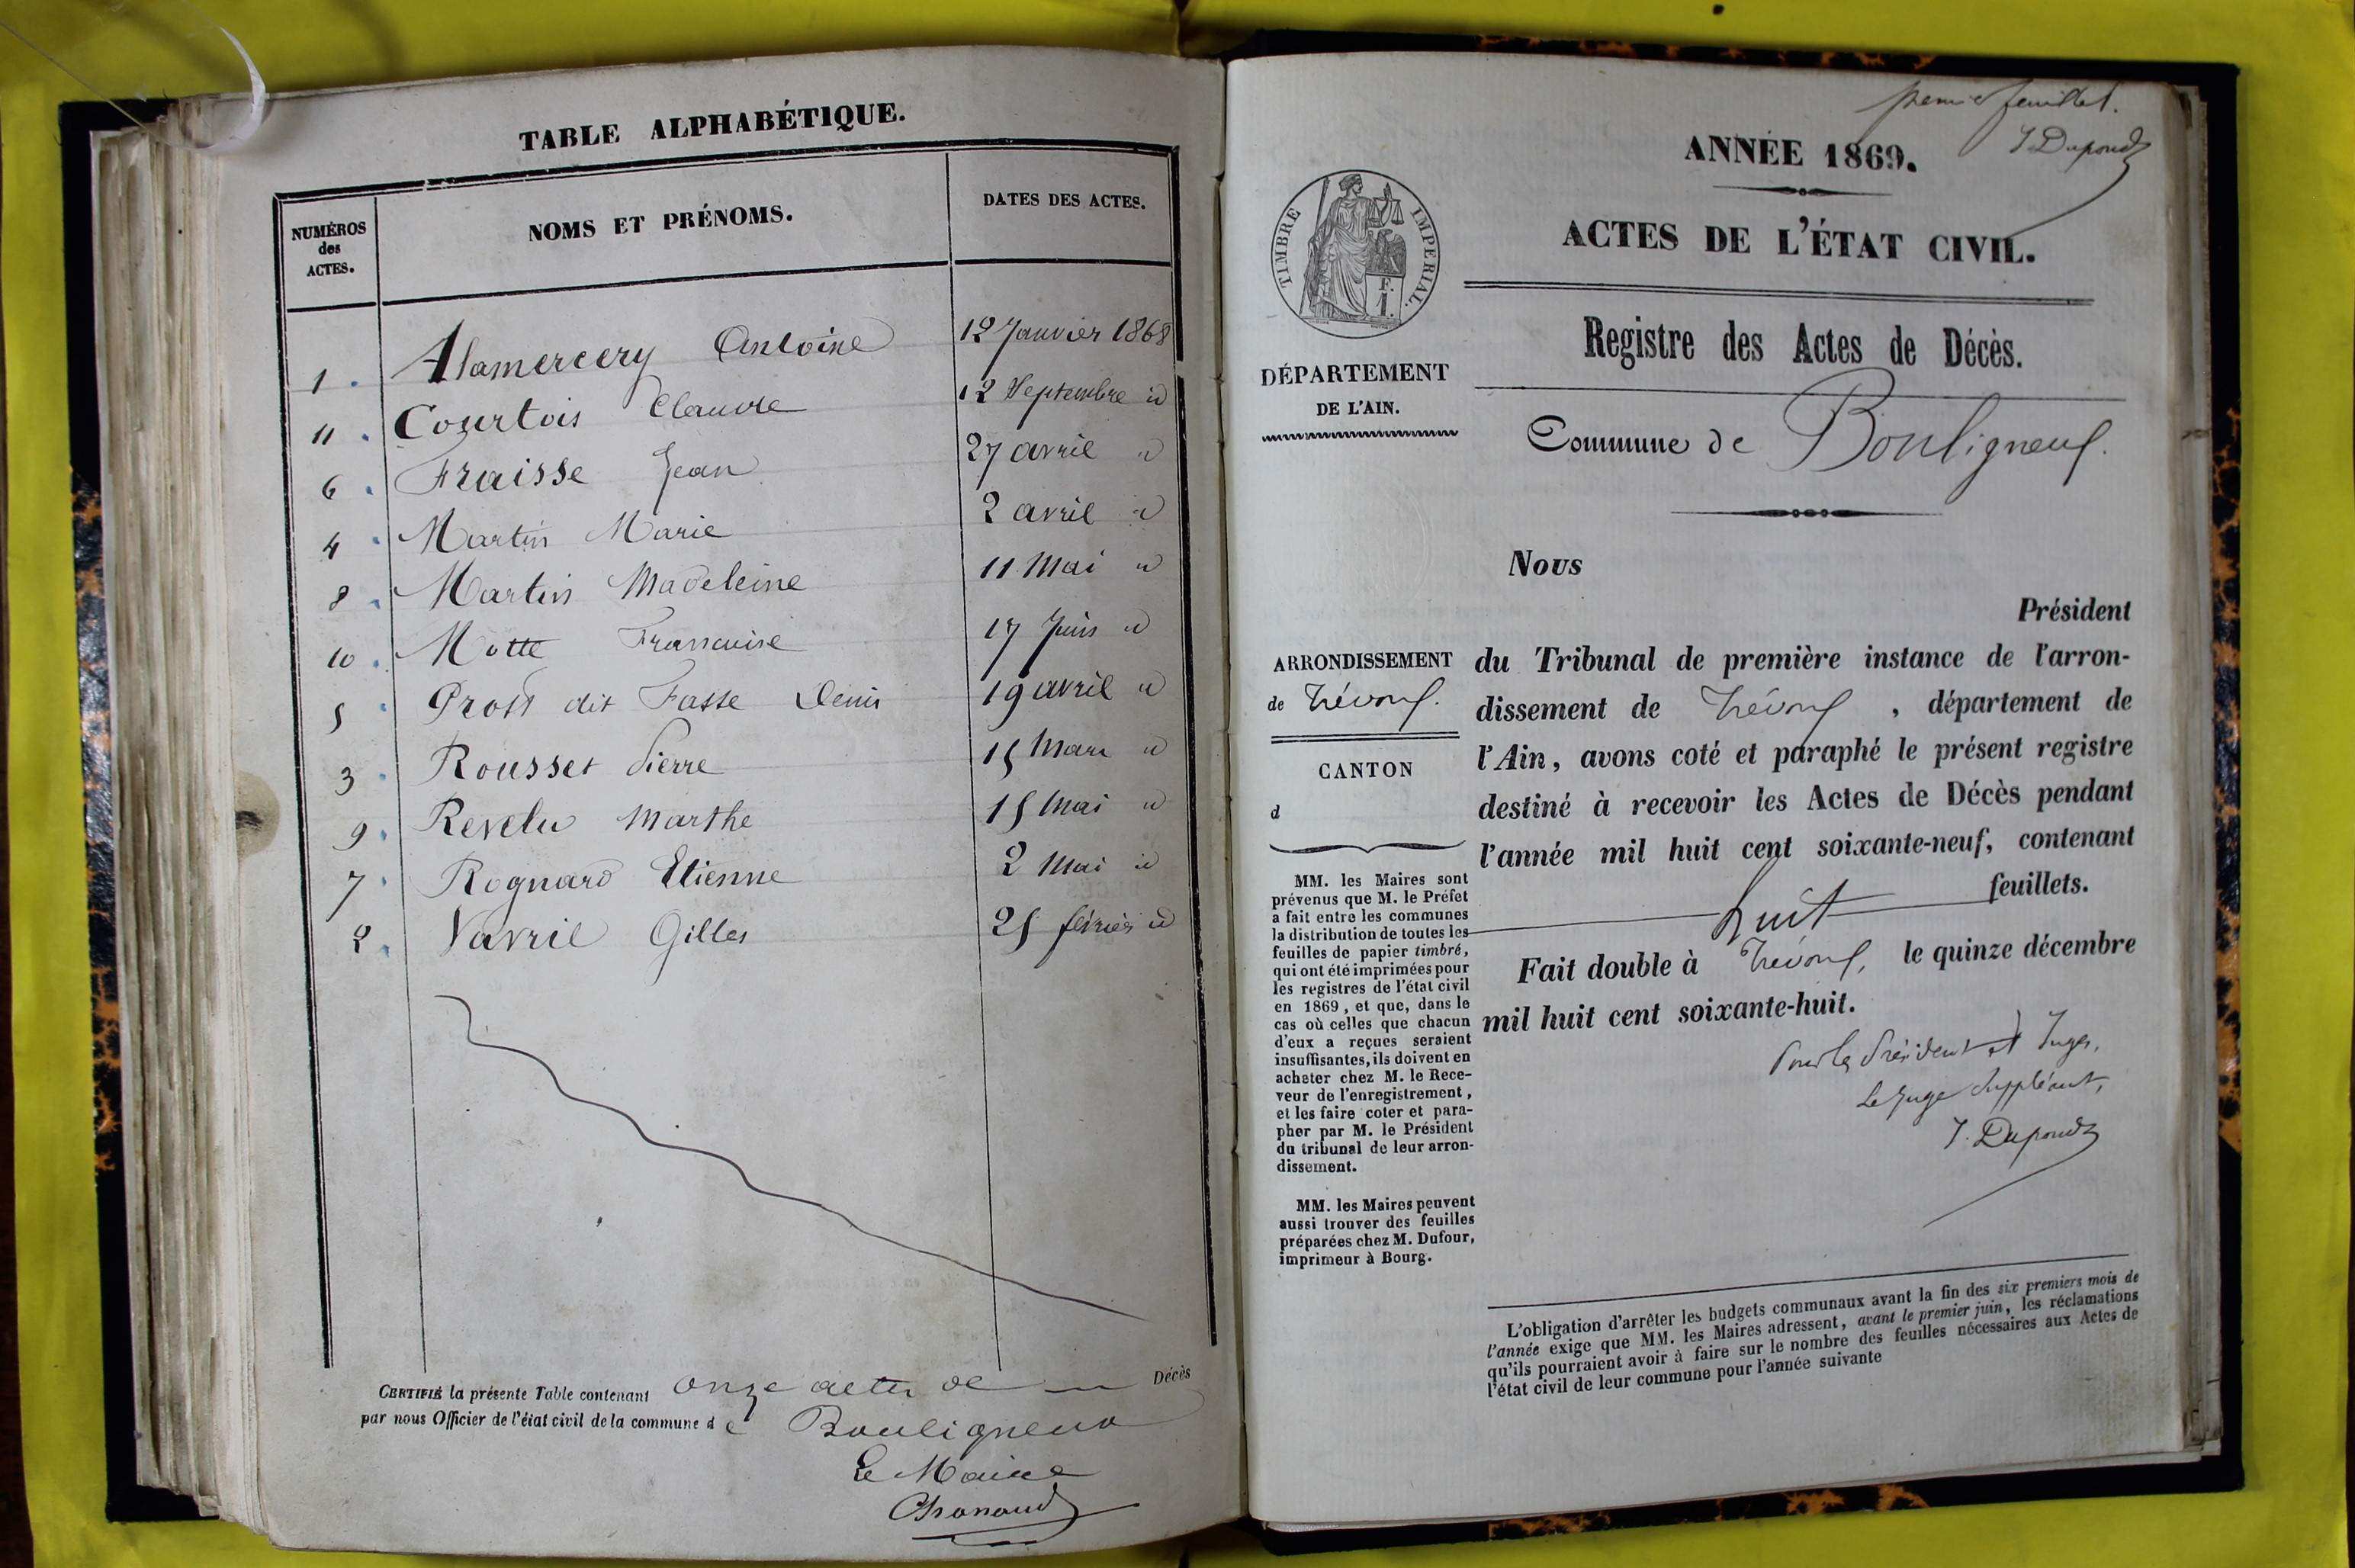 TABLE ALPHABÉTIQUE.
NUMÉROS des ACTES. NOMS ET PRÉNOMS. DATES DES ACTES.
1 Alamercery Antoine 12 Janvier 1868
11 Courtois Claude 12 Septembre id
6 Fraisse Jean 27 avril id
4 Martin Marie 2 avril id
8 Martin Madeleine 11 Mai id
10 Motte Francoise 17 Juin id
5 Prost dit Fasse Denis 19 avril id
3 Rousset Pierre 15 Mars id
9 Revelu Marthe 15 Mai id
7 Rognard Etienne 2 Mai id
2 Vavril Gilles 25 février id
CERTIFIÉ la présente Table contenant onze actes de Décès
par nous Officier de l'état civil de la commune de Bouligneux
Le Maire
premier feuillet.
J. Dupond
ANNÉE 1869.
ACTES DE L'ÉTAT CIVIL.
TIMBRE IMPERIAL.
F. 1.
Registre des Actes de Décès.
DÉPARTEMENT
DE L'AIN.
Commune de Bouligneux.
Nous
Président
ARRONDISSEMENT
de Trévoux.
CANTON
d
du Tribunal de première instance de l'arron-
dissement de Trévoux, département de
l'Ain, avons coté et paraphé le présent registre
destiné à recevoir les Actes de Décès pendant
l'année mil huit cent soixante-neuf, contenant
huit feuillets.
Fait double à Trévoux, le quinze décembre
mil huit cent soixante-huit.
Pour les Président et Juges,
Le Juge Suppléant,
J. Dupond
MM. les Maires sont
prévenus que M. le Préfet
a fait entre les communes
la distribution de toutes les
feuilles de papier timbré,
qui ont été imprimées pour
les registres de l'état civil
en 1869, et que, dans le
cas où celles que chacun
d'eux a reçues seraient
insuffisantes, ils doivent en
acheter chez M. le Rece-
veur de l'enregistrement,
et les faire coter et para-
pher par M. le Président
du tribunal de leur arron-
dissement.
MM. les Maires peuvent
aussi trouver des feuilles
préparées chez M. Dufour,
imprimeur à Bourg.
L'obligation d'arrêter les budgets communaux avant la fin des six premiers mois de
l'année exige que MM. les Maires adressent, avant le premier juin, les réclamations
qu'ils pourraient avoir à faire sur le nombre des feuilles nécessaires aux Actes de
l'état civil de leur commune pour l'année suivante